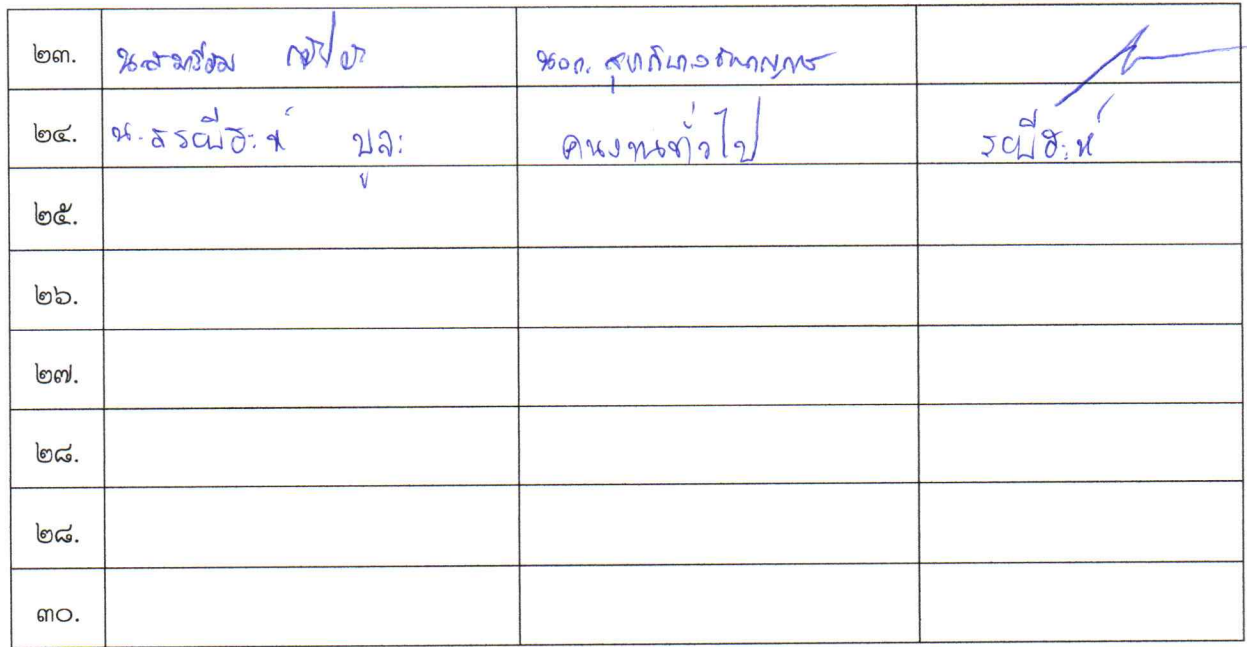 ๒๓. น.ส มารียม
๒๔. น.ส รอปีฮะห์ บูละ คนงานทั่วไป รอปีฮะห์
๒๕.
๒๖.
๒๗.
๒๘.
๒๘.
๓๐.